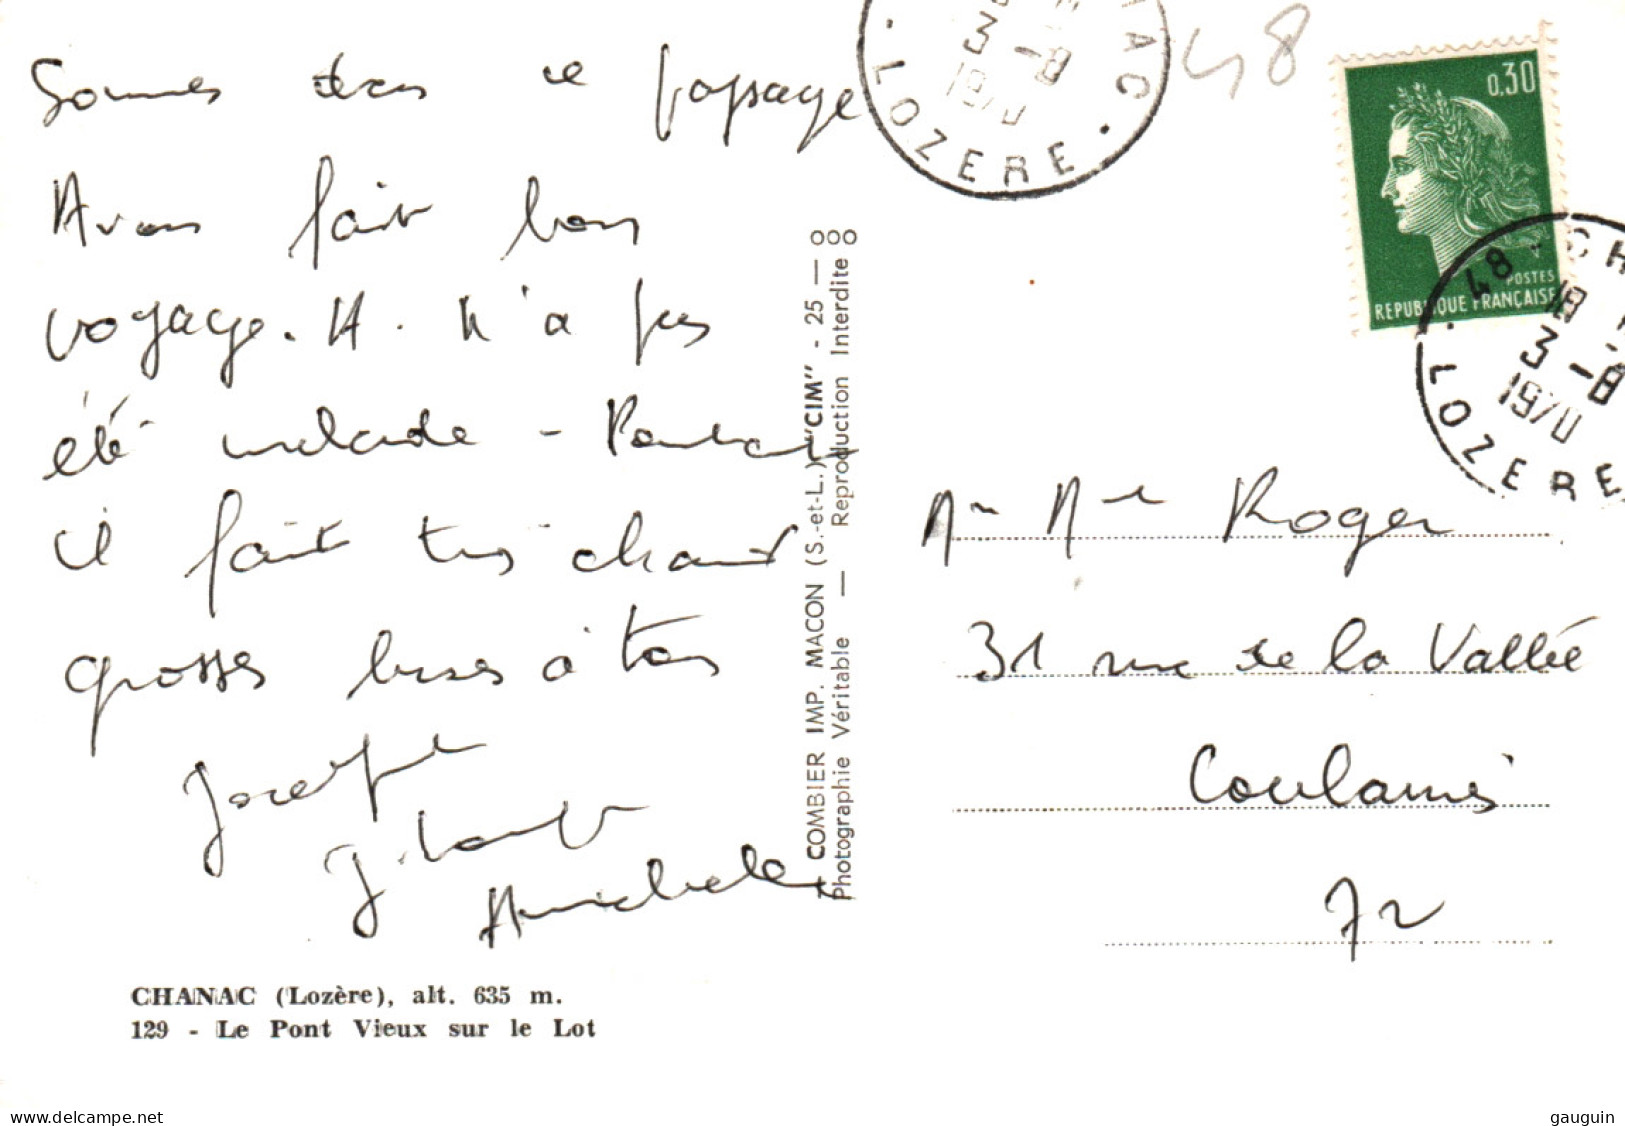 Sommes dans ce paysage
Avons fait bon
voyage. M. n'a pas
été malade - Pourtant
il fait très chaud
grosses bises à tous
Joseph
Michele
CHANAC (Lozère), alt. 635 m.
129 - Le Pont Vieux sur le Lot
COMBIER IMP. MACON (S.-et-L.) "CIM" - 25 —
Photographie Véritable — Reproduction Interdite
NAC
3 -8
1970
LOZERE
48
0,30
POSTES
REPUBLIQUE FRANÇAISE
48 CH
18
3 -8
1970
LOZERE
Mr Mme Roger
31 rue de la Vallée
Coulaines
72
delcampe.net
gauguin